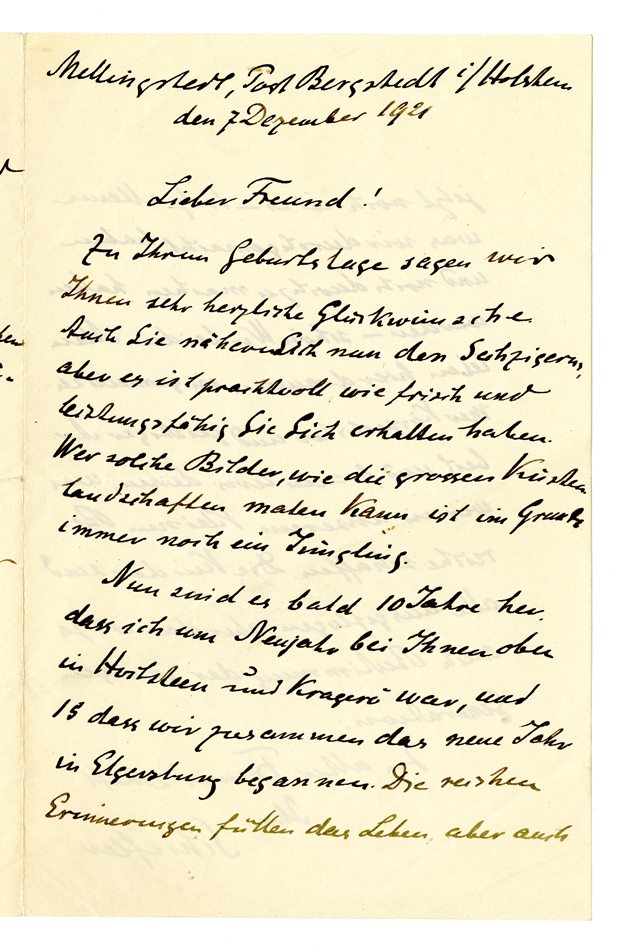 Mellingstedt, Post Bergstedt i/Holstein
den 7 Dezember 1921
Lieber Freund!
Zu Ihrem Geburtstage sagen wir
Ihnen sehr herzliche Glückwünsche.
Auch Sie nähern Sich nun den Sechzigern,
aber es ist prachtvoll, wie frisch und
leistungsfähig Sie Sich erhalten haben.
Wer solche Bilder, wie die grossen Küsten
landschaften malen kann ist im Grunde
immer noch ein Jüngling.
Nun sind es bald 10 Jahre her,
dass ich um Neujahr bei Ihnen oben
in Hvitsteen und Kragerö war, und
15 dass wir zusammen das neue Jahr
in Elgersburg begannen. Die reichen
Erinnerungen füllen das Leben, aber auch